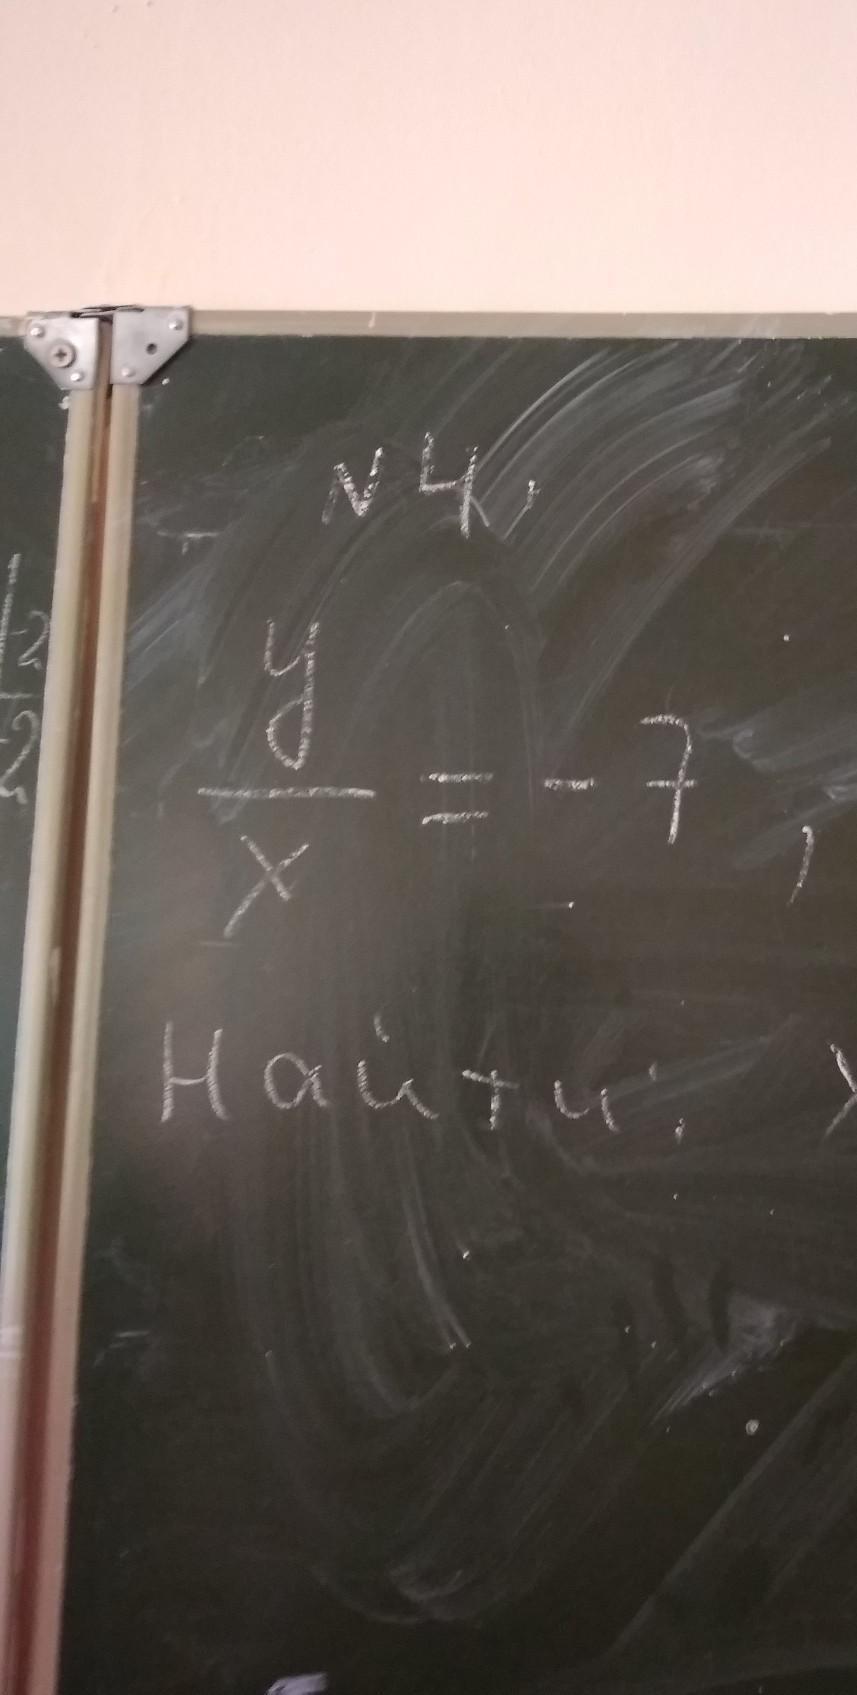 N 4.
y
—
x
= - 7 ,
Найти: